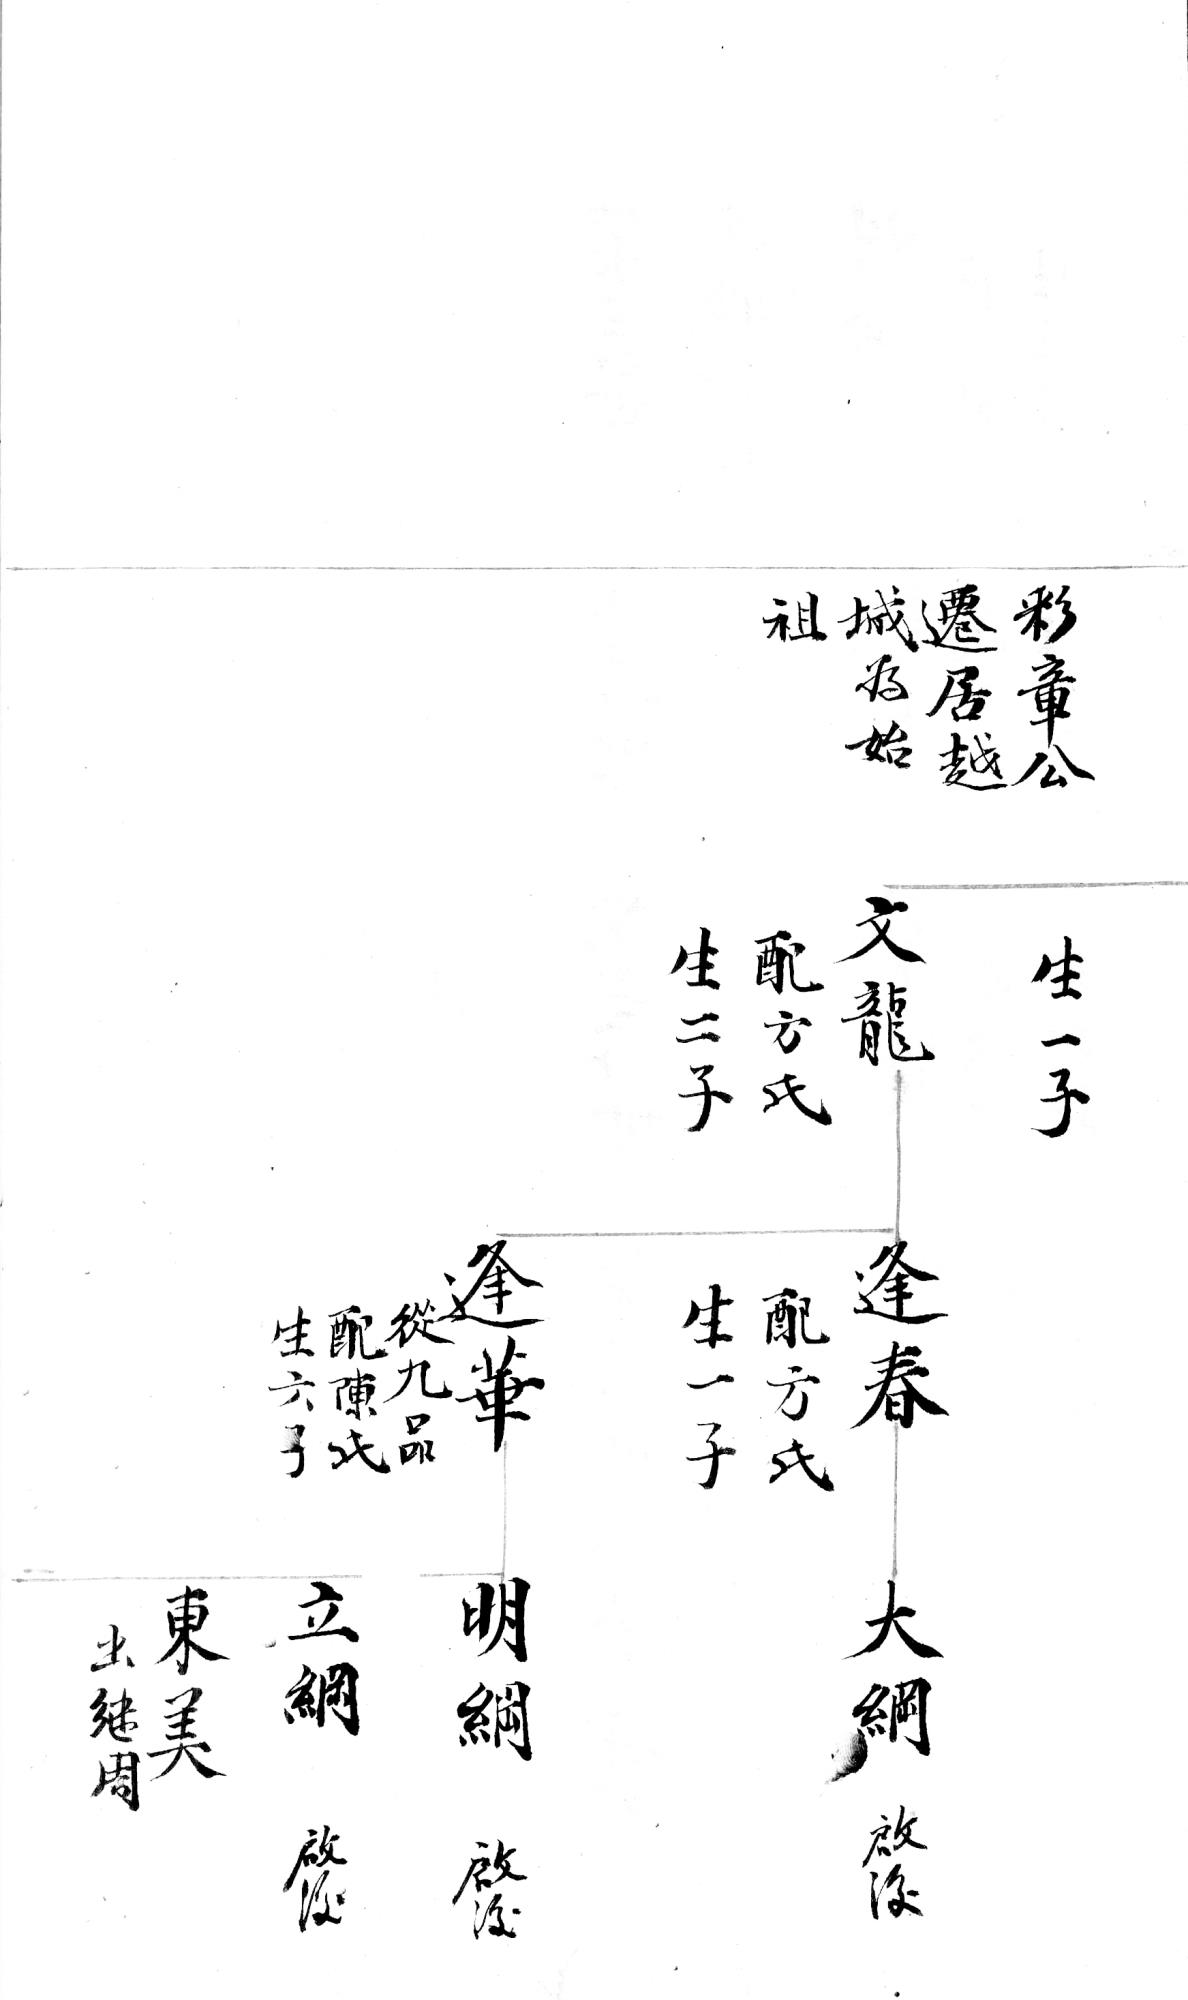 彩章公
遷居越
城为始
祖
生一子
文龍
配方氏
生二子
逢春
配方氏
生一子
逢華
從九品
配陳氏
生六子
大綱
啟後
明綱
啟後
立綱
啟後
東美
出继周